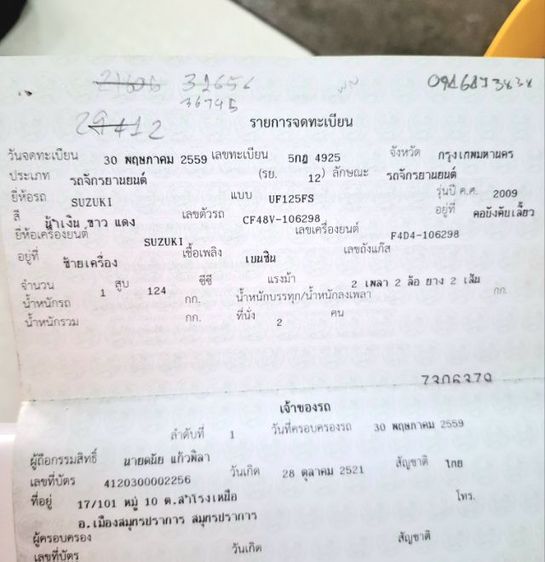 21606 31656 0946173838
36795
29412
รายการจดทะเบียน
วันจดทะเบียน 30 พฤษภาคม 2559 เลขทะเบียน 5กฎ 4925 จังหวัด กรุงเทพมหานคร
ประเภท รถจักรยานยนต์ (รย. 12) ลักษณะ รถจักรยานยนต์
ยี่ห้อรถ SUZUKI แบบ UF125FS รุ่นปี ค.ศ. 2009
สี น้ำเงิน,ขาว แดง เลขตัวรถ CF48V-106298 อยู่ที่ คอบังคับเลี้ยว
ยี่ห้อเครื่องยนต์ SUZUKI เลขเครื่องยนต์ F4D4-106298
อยู่ที่ ซ้ายเครื่อง เชื้อเพลิง เบนซิน เลขถังแก๊ส
จำนวน 1 สูบ 124 ซีซี แรงม้า 2 เพลา 2 ล้อ ยาง 2 เส้น
น้ำหนักรถ กก. น้ำหนักบรรทุก/น้ำหนักลงเพลา กก.
น้ำหนักรวม กก. ที่นั่ง 2 คน
7306379
เจ้าของรถ
ลำดับที่ 1 วันที่ครอบครองรถ 30 พฤษภาคม 2559
ผู้ถือกรรมสิทธิ์ นายดนัย แก้วพิลา
เลขที่บัตร 4120300002256 วันเกิด 28 ตุลาคม 2521 สัญชาติ ไทย
ที่อยู่ 17/101 หมู่ 10 ต.สำโรงเหนือ โทร.
อ.เมืองสมุทรปราการ สมุทรปราการ
ผู้ครอบครอง
เลขที่บัตร วันเกิด สัญชาติ